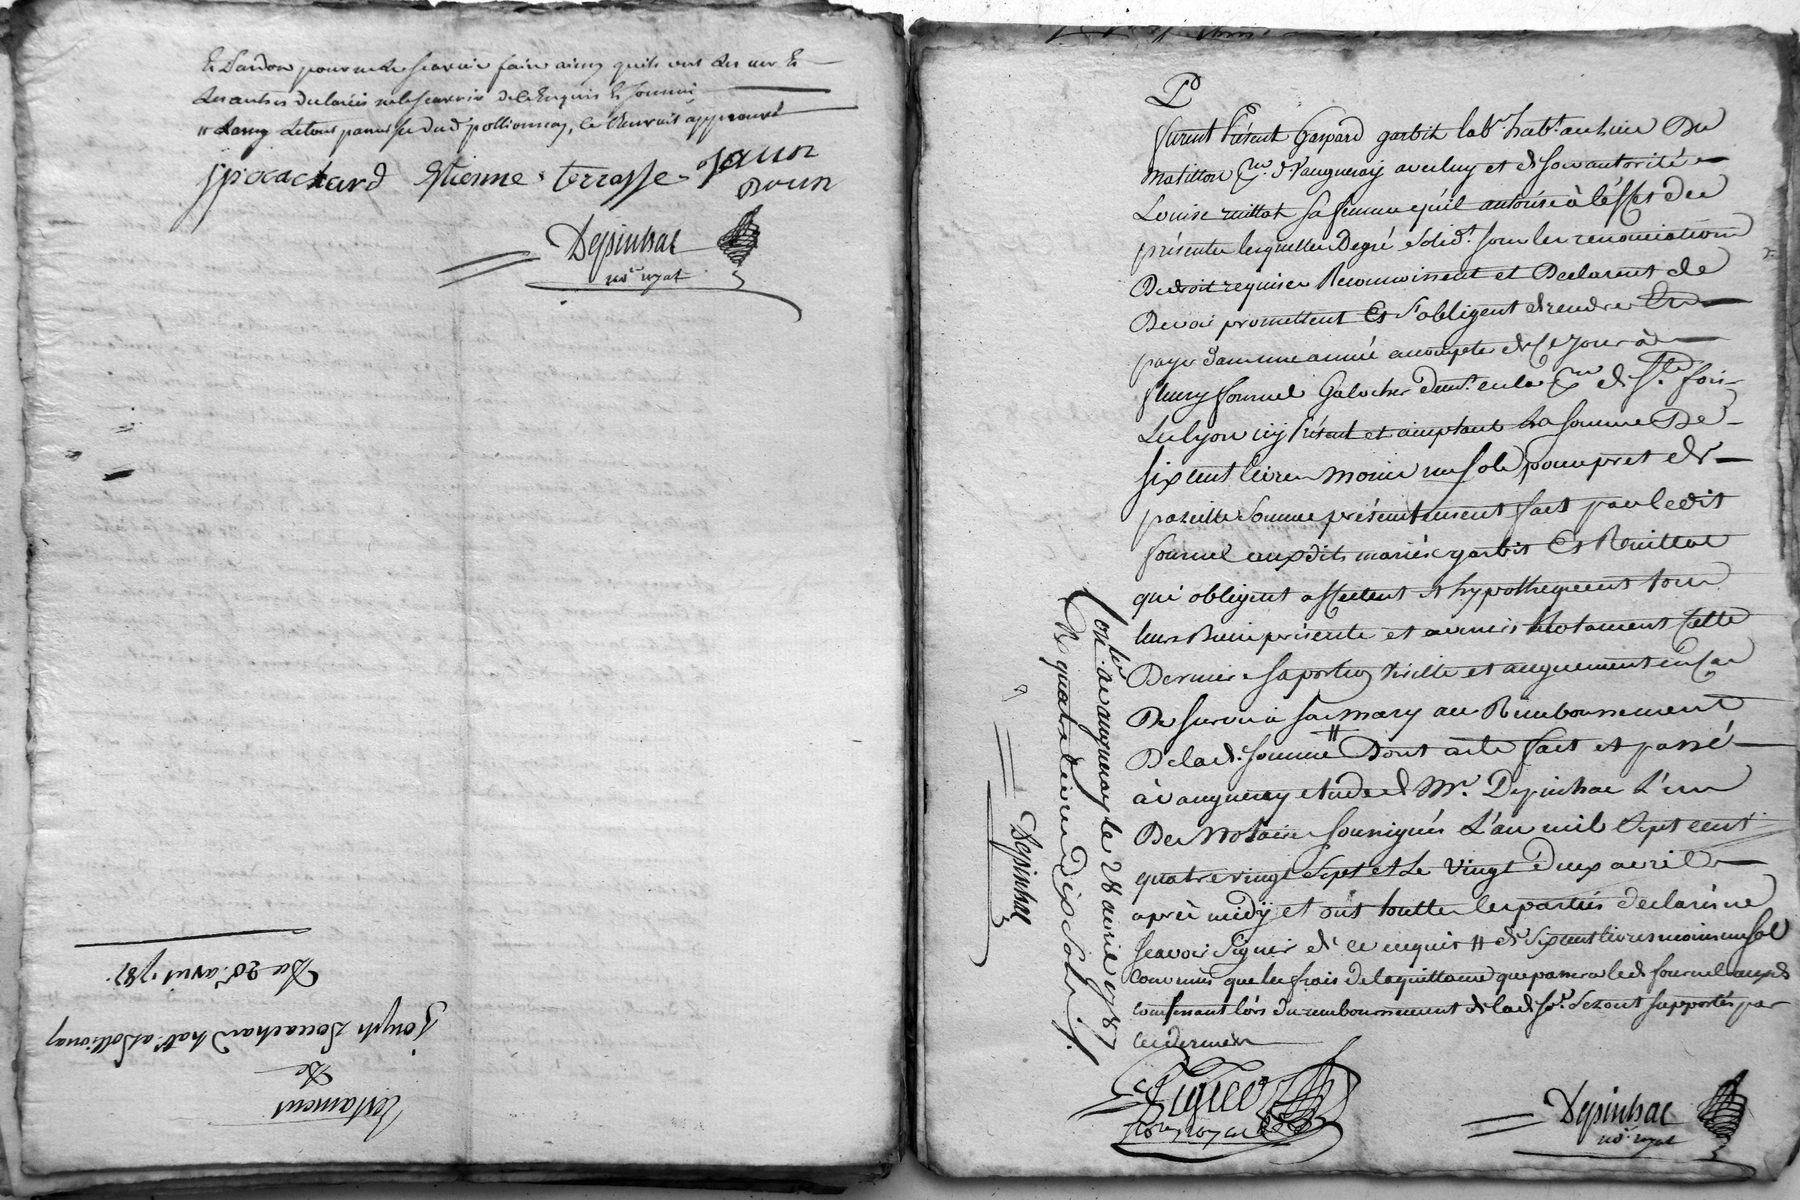 Et Dardon pour ne le scavoir faire ainsy quils ont dit
les autres declaré ne le scavoir de ce enquis et sommé
pollionnay, approuvé
JPocachard Estienne terrasse
Depinhac
no.re royal
Testament
De
Joseph Pocachard hab.t a Pollionay
Du 20 avril 1787
Furent Présent Gaspard garbit lab.r hab.t au lieu Du
Matillon de Vaugneray avec luy et de son autorité
Louise ruillat sa femme quil autorise à l'effet des
présentes lesquelles De gré solid.t sous les renonciations
De droit requises Reconnoissent et Declarent de
Devoir promettent Et s'obligent de rendre Et
payer dans une année a compter de ce jour à
fleury fournel Galocher dem.t en la de S.te foi
Les lyon icy Présent et acceptant La somme De
six cent livres moins un sols, pour pret de
pareille somme présentement fait par le dit
fournel auxdits mariés garbit Et Ruillat
qui obligent affectent et hypothequent tous
leurs Biens présents et avenirs Notament cette
Derniere sa portion virille et augument en cas
De survie à son mary au Remboursement
De lad. somme # Dont acte fait et passé
à vaugneray etude de M.e Depinhac L'un
Des Notaires soussignés L'an mil Sept cent
quatre vingt Sept et Le vingt Deux avril
après midy et ont toutes les parties declarés ne
scavoir signer de ce enquis # de six cent livres moins un sol
convenus que les frais de la quittance que passera led. fournel auxd.
confessant lors du remboursement de lad. So.e Seront supportés par
ces derniers
Depinhac
no.re royal
Con.lé a vaugneray le 28 avril 1787
R. quatre livres Dix sols
Depinhac